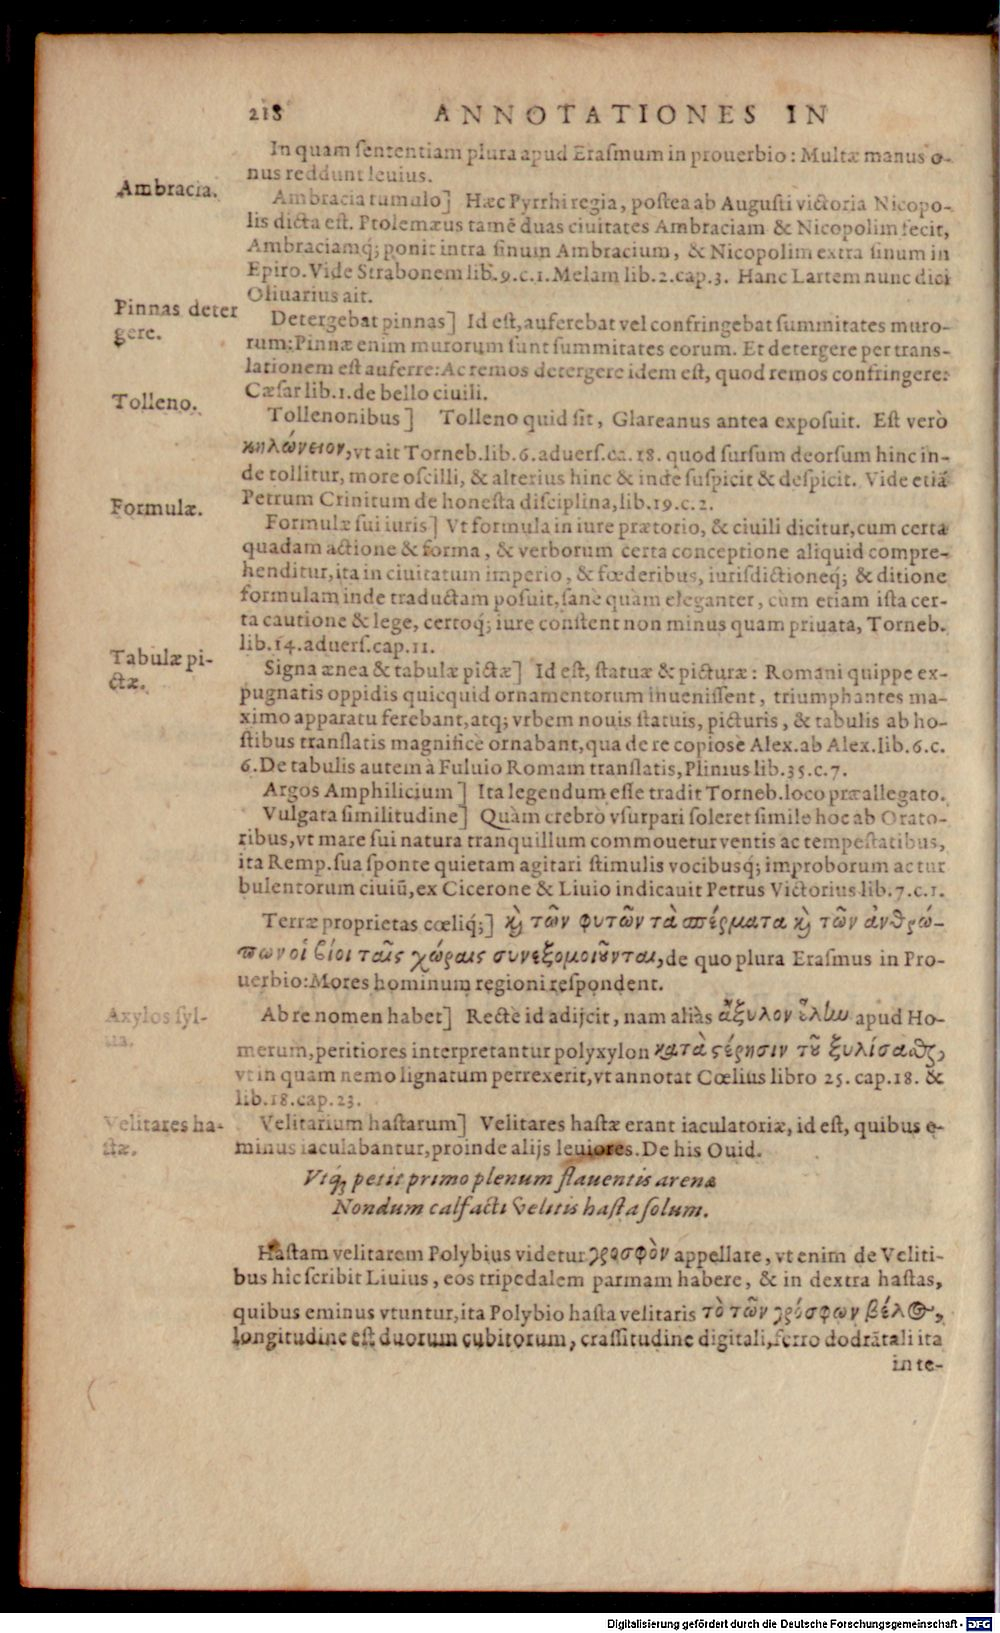 218 ANNOTATIONES IN
In quam ſententiam plura apud Eraſmum in prouerbio: Multæ manus o-
nus reddunt leuius.
Ambracia.
Ambracia tumulo] Hæc Pyrrhi regia, poſtea ab Auguſti victoria Nicopo-
lis dicta eſt. Ptolemæus tamē duas ciuitates Ambraciam & Nicopolim fecit,
Ambraciamq́; ponit intra ſinum Ambracium, & Nicopolim extra ſinum in
Epiro. Vide Strabonem lib.9.c.1. Melam lib.2.cap.3. Hanc Lartem nunc dici
Oliuarius ait.
Pinnas deter
gere.
Detergebat pinnas] Id eſt, auferebat vel confringebat ſummitates muro-
rum: Pinnæ enim murorum ſunt ſummitates eorum. Et detergere per trans-
lationem eſt auferre: Ac remos detergere idem eſt, quod remos confringere:
Cæſar lib.1. de bello ciuili.
Tolleno.
Tollenonibus] Tolleno quid ſit, Glareanus antea expoſuit. Eſt verò
κηλώνειον, vt ait Torneb.lib.6.aduerſ.ca.18. quod ſurſum deorſum hinc in-
de tollitur, more oſcilli, & alterius hinc & inde ſuſpicit & deſpicit. Vide etiā
Petrum Crinitum de honeſta diſciplina, lib.19.c.2.
Formulæ.
Formulæ ſui iuris] Vt formula in iure prætorio, & ciuili dicitur, cum certa
quadam actione & forma, & verborum certa conceptione aliquid compre-
henditur, ita in ciuitatum imperio, & fœderibus, iuriſdictioneq́; & ditione
formulam inde traductam poſuit, ſanè quàm eleganter, cùm etiam iſta cer-
ta cautione & lege, certoq́; iure conſtent non minus quam priuata, Torneb.
lib.14.aduerſ.cap.11.
Tabulæ pi-
ctæ.
Signa ænea & tabulæ pictæ] Id eſt, ſtatuæ & picturæ: Romani quippe ex-
pugnatis oppidis quicquid ornamentorum inueniſſent, triumphantes ma-
ximo apparatu ferebant, atq; vrbem nouis ſtatuis, picturis, & tabulis ab ho-
ſtibus tranſlatis magnificè ornabant, qua de re copiosè Alex. ab Alex.lib.6.c.
6. De tabulis autem à Fuluio Romam tranſlatis, Plinius lib.35.c.7.
Argos Amphilicium] Ita legendum eſſe tradit Torneb. loco præallegato.
Vulgata ſimilitudine] Quàm crebrò vſurpari ſoleret ſimile hoc ab Orato-
ribus, vt mare ſui natura tranquillum commouetur ventis ac tempeſtatibus,
ita Remp. ſua ſponte quietam agitari ſtimulis vocibusq́; improborum ac tur
bulentorum ciuiū, ex Cicerone & Liuio indicauit Petrus Victorius lib.7.c.1.
Terræ proprietas cœliq́;] ϗ τῶν φυτῶν τὰ σπέρματα ϗ τῶν ἀνθρώ-
πων οἱ βίοι ταῖς χώραις συνεξομοιοῦνται, de quo plura Eraſmus in Pro-
uerbio: Mores hominum regioni reſpondent.
Axylos ſyl-
ua.
Ab re nomen habet] Rectè id adijcit, nam aliàs ἄξυλον ὕλην apud Ho-
merum, peritiores interpretantur polyxylon κατὰ στέρησιν τοῦ ξυλίσασθαι,
vt in quam nemo lignatum perrexerit, vt annotat Cœlius libro 25. cap.18. &
lib.18.cap.23.
Velitares ha-
ſtæ.
Velitarium haſtarum] Velitares haſtæ erant iaculatoriæ, id eſt, quibus e-
minus iaculabantur, proinde alijs leuiores. De his Ouid.
Vtq́; petit primo plenum flauentis arenæ
Nondum calfacti velitis haſta ſolum.
Haſtam velitarem Polybius videtur γροσφὸν appellare, vt enim de Veliti-
bus hîc ſcribit Liuius, eos tripedalem parmam habere, & in dextra haſtas,
quibus eminus vtuntur, ita Polybio haſta velitaris τὸ τῶν γρόσφων βέλος,
longitudine eſt duorum cubitorum, craſſitudine digitali, ferro dodrātali ita
in te-
Digitalisierung gefördert durch die Deutsche Forschungsgemeinschaft - DFG